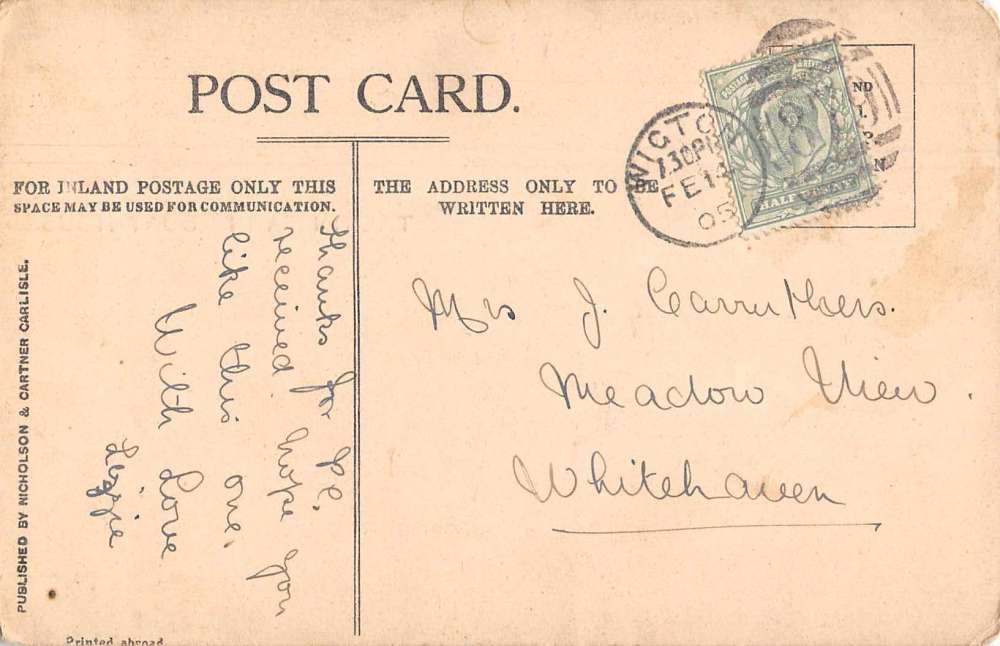 POST CARD.
FOR INLAND POSTAGE ONLY THIS
SPACE MAY BE USED FOR COMMUNICATION.
THE ADDRESS ONLY TO BE
WRITTEN HERE.
WIGTO
7.30PM
FE 13
05
HALF PENNY
ND
N
thanks for P.C.
received hope you
like this one.
With Love
Lizzie
Mrs J. Carruthers.
Meadow View.
Whitehaven
PUBLISHED BY NICHOLSON & CARTNER CARLISLE.
Printed abroad